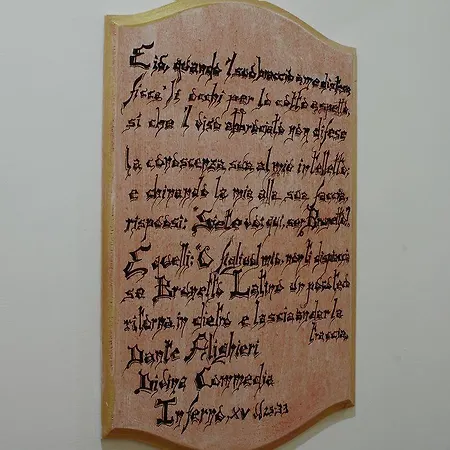 E io, quando 'l suo braccio a me distese,
ficcaї li occhi per lo cotto aspetto,
sì che 'l viso abbrociato non difese
la conoscenza sua al mio intelletto;
e chinando la mia alla sua faccia,
risposi: "Siete voi qui, ser Brunetto?"
E quelli: "O figliuol mio, non ti dispiaccia
se Brunetto Latino un poco teco
ritorna in dietro e lascia andar la
traccia.
Dante Alighieri
Divina Commedia
Inferno, XV